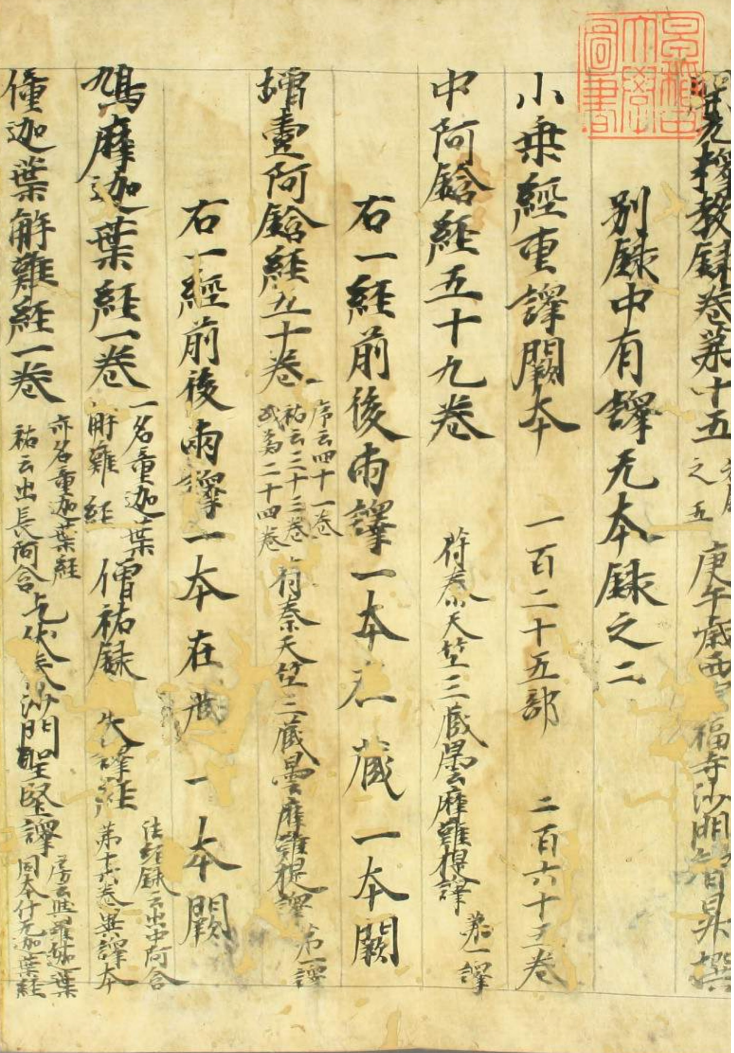 開元釋教録卷第十五 庚午歳西崇福寺沙門智昇撰
別録中有譯无本録之二
小乘經重譯闕本 一百二十五部 二百六十三卷
中阿鋡經五十九卷 符秦天竺三藏曇摩難提譯 第一譯
右一經前後兩譯一本在藏一本闕
增壹阿鋡経五十卷 序云四十一卷 祐云三十三卷 或爲二十四卷 符秦天竺三藏曇摩難提譯 第一譯
右一經前後兩譯一本在藏一本闕
鳩摩迦葉経一卷 一名童迦葉解難経 僧祐録 失譯経 法經録云出中阿含第十六卷異譯本
僮迦葉解難経一卷 亦名童迦葉経 祐云出長阿含 乞伏秦沙門聖堅譯 房云與鳩摩迦葉 同本什无迦葉経